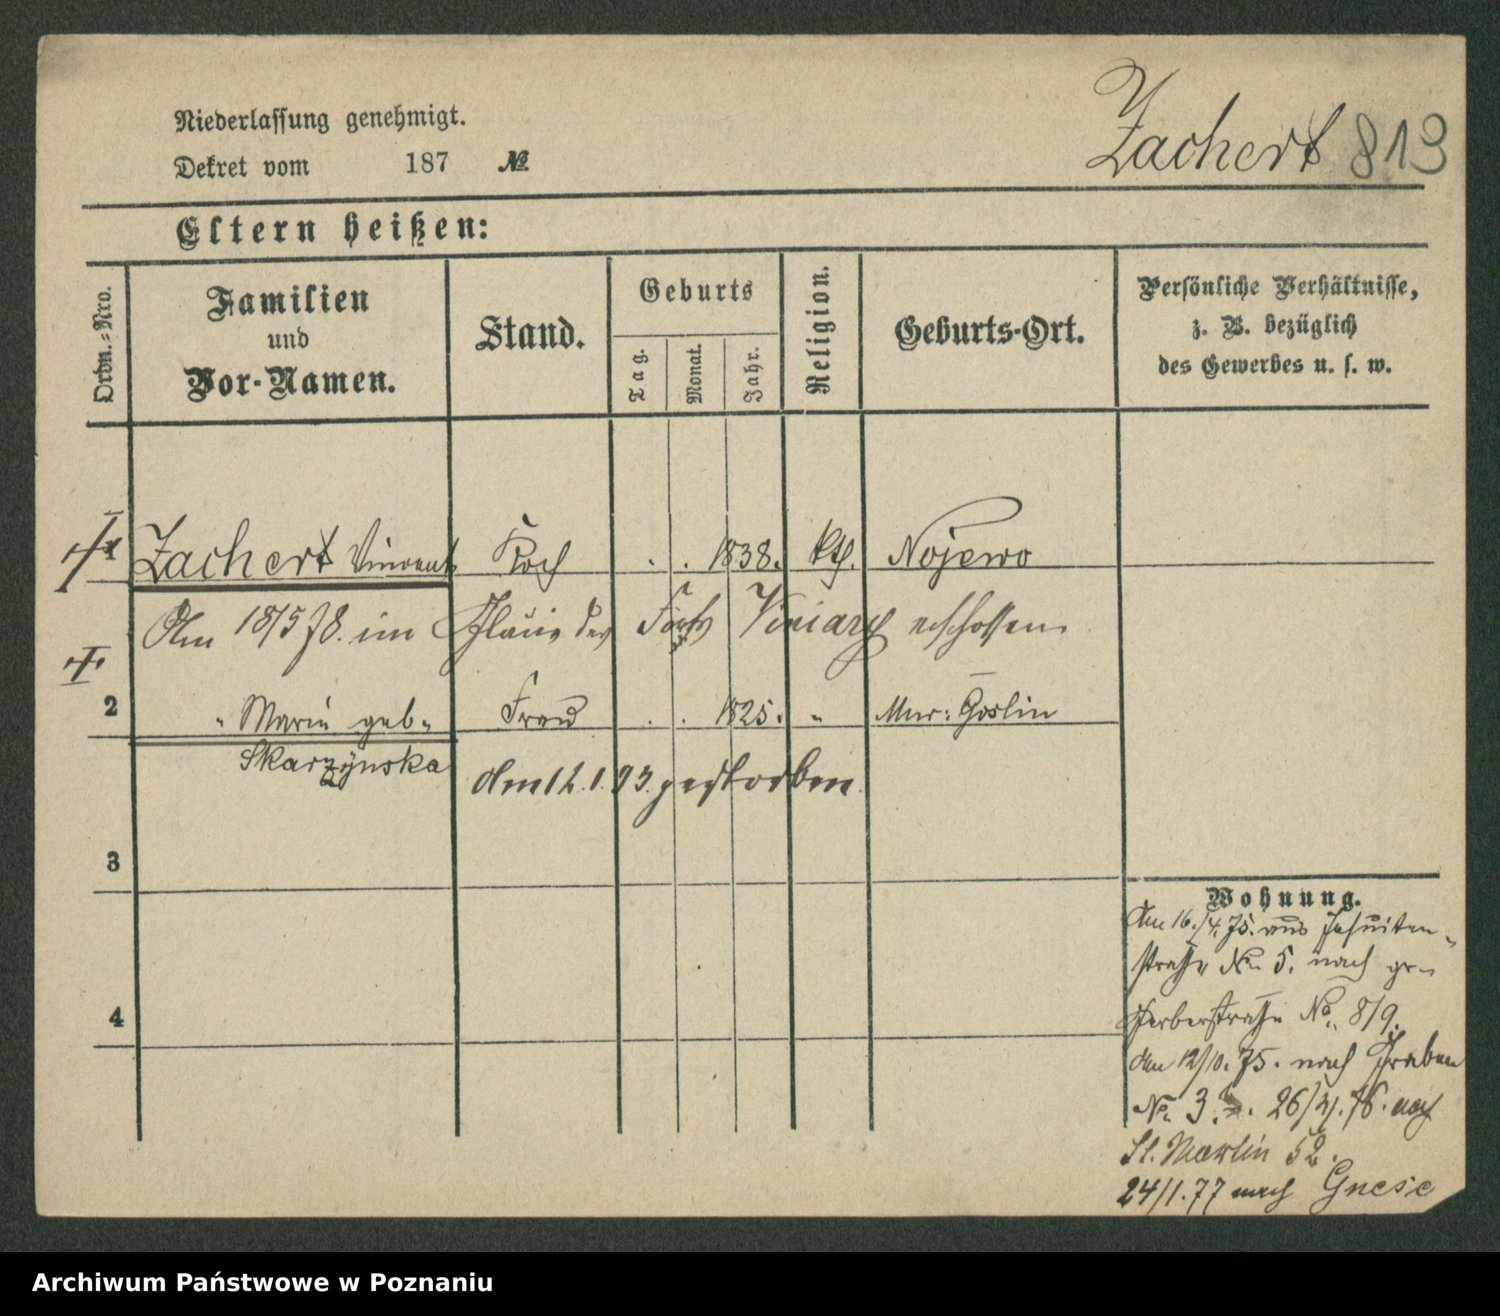 Niederlassung genehmigt.
Dekret vom 187 №
Zachert 813
Eltern heißen:
Ordn.-Nro.
Familien
und
Vor-Namen.
Stand.
Geburts
Tag.
Monat.
Jahr.
Religion.
Geburts-Ort.
Persönliche Verhältnisse,
z. B. bezüglich
des Gewerbes u. s. w.
Zachert Vincent Koch . . 1838. kth. Nojewo
Am 18/5 78. im Glacis des Forts Viniary erschossen
2 " Marie geb. Frau . . 1825. " Mur: Goslin
Skarzynska
am 12.1.93. gestorben.
3
4
Wohnung.
Am 16./4. 75. aus Jesuiten-
straße No 5. nach gr-
Gerberstraße No. 8/9.
am 12/10. 75. nach Graben
No. 3. 26/4. 76. nach
St. Martin 52.
24/1. 77 nach Gnese
Archiwum Państwowe w Poznaniu